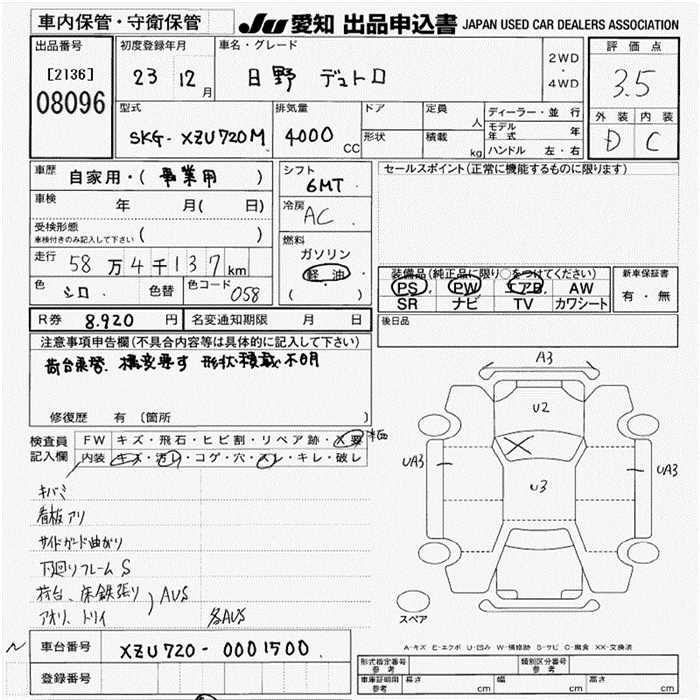 車内保管・守衛保管
JU 愛知 出品申込書 JAPAN USED CAR DEALERS ASSOCIATION
出品番号
[2136]
08096
初度登録年月
23 12月
車名・グレード
日野 デュトロ
2WD
・
4WD
評価点
3.5
外装 内装
D C
型式
SKG-XZU720M
排気量
4000 CC
ドア
形状
定員 人
積載 kg
ディーラー・並行
モデル年式 年
ハンドル 左・右
車歴 自家用・(事業用)
車検 年 月( 日)
受検形態
車検付きのみ記入して下さい ( )
走行 58万4千137km
色 シロ. 色替 色コードNo 058
シフト
6MT
冷房
AC
燃料
ガソリン
軽油
( )
セールスポイント(正常に機能するものに限ります)
装備品(純正品に限り○をつけてください)
PS PW エアB AW
SR ナビ TV カワシート
新車保証書
有・無
R券 8.920 円 名変通知期限 月 日
後日品
注意事項申告欄(不具合内容等は具体的に記入して下さい)
荷台乗替. 構変要す 形状積載不明
修復歴 有 (箇所 )
検査員
記入欄
FW キズ・飛石・ヒビ割・リペア跡・X要
内装 キズ・汚れ・コゲ・穴・スレ・キレ・破レ
キバミ
看板アリ
サイドガード曲がり
下廻りフレームS
荷台、床鉄張り
アオリ、トリイ
AUS
各AUS
A3
U2
UA3
U3
UA3
スペア
A-キズ E-エクボ U-凹み W-補修跡 S-サビ C-腐食 XX-交換済
N
車台番号 XZU720-0001500.
登録番号
形式指定番号
参考
類別区分番号
参考
車庫証明用
参考
長さ cm 幅 cm 高さ cm